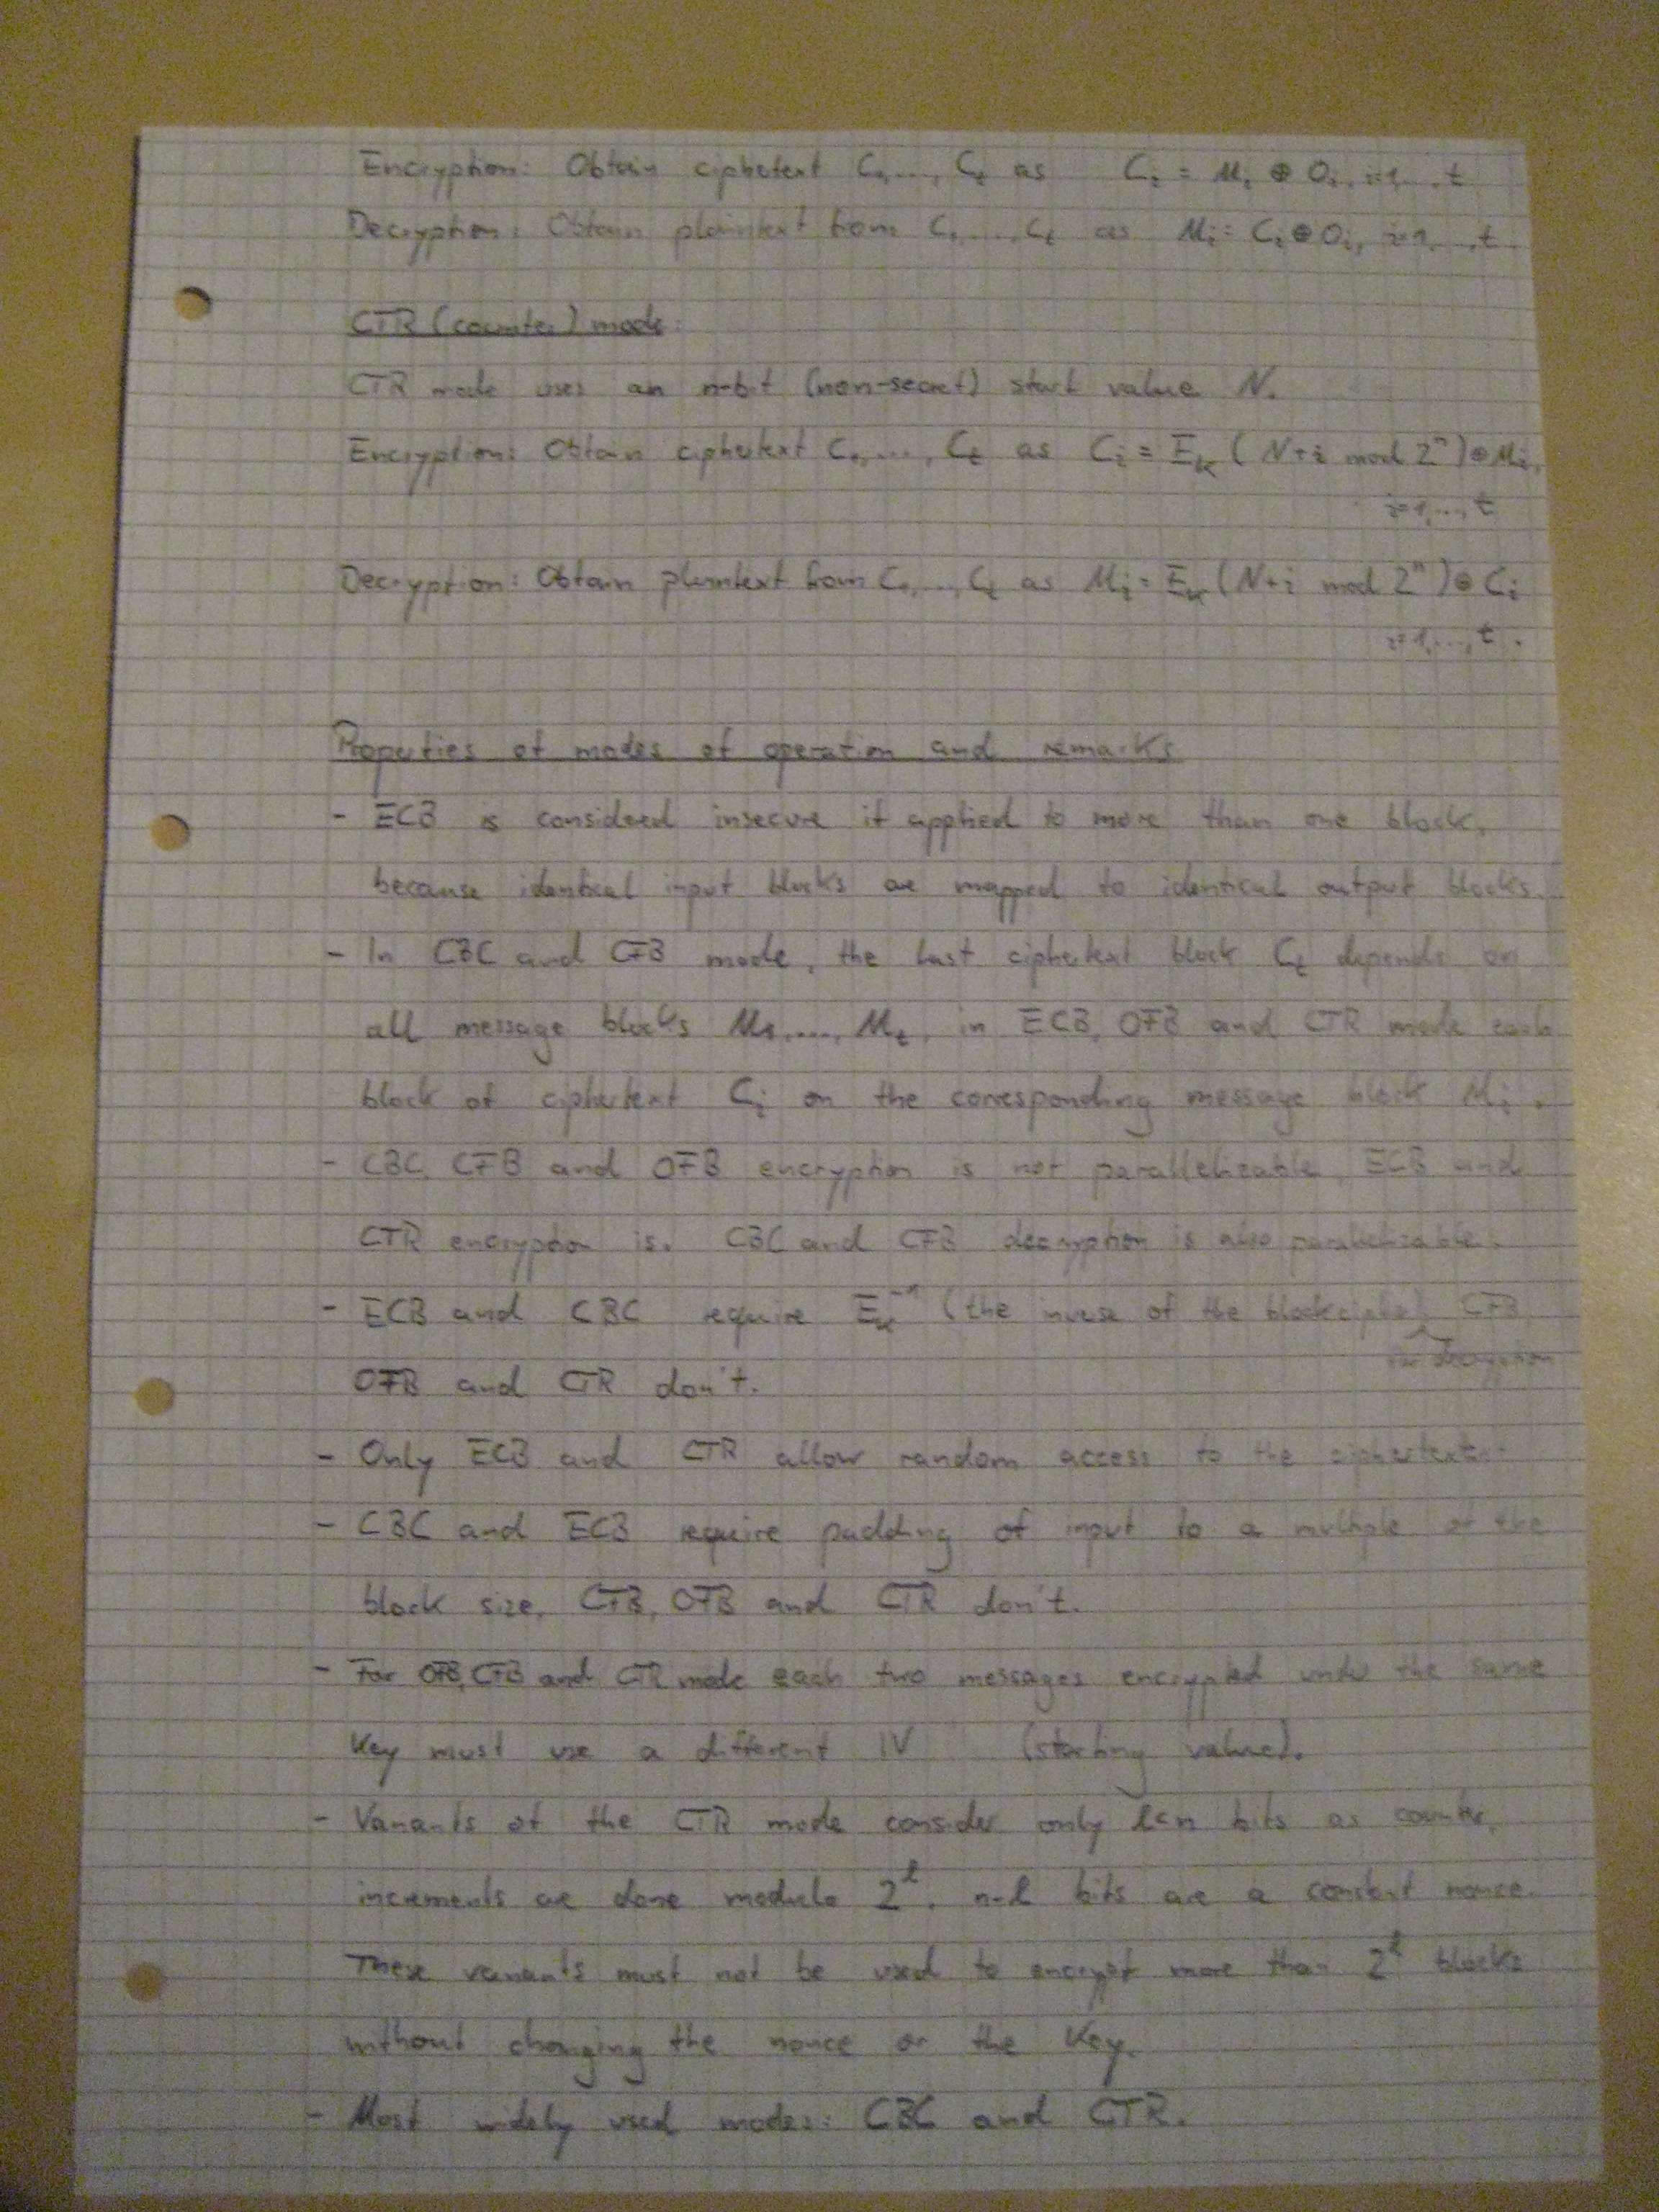 Encryption: Obtain ciphetext C₁,..., Cₜ as Cᵢ = Mᵢ ⊕ Oᵢ, i=1,...,t
Decryption: Obtain plaintext from C₁,...,Cₜ as Mᵢ = Cᵢ ⊕ Oᵢ, i=1,...,t.
CTR (counter) mode:
CTR mode uses an n-bit (non-secret) start value N.
Encryption: Obtain ciphertext C₁,..., Cₜ as Cᵢ = E_K (N+i mod 2ⁿ) ⊕ Mᵢ,
i=1,...,t
Decryption: Obtain plaintext from C₁,...,Cₜ as Mᵢ = E_K (N+i mod 2ⁿ) ⊕ Cᵢ
i=1,...,t.
Properties of modes of operation and remarks
- ECB is considered insecure if applied to more than one block,
because identical input blocks are mapped to identical output blocks.
- In CBC and CFB mode, the last ciphertext block Cₜ depends on
all message blocks M₁,..., Mₜ, in ECB, OFB and CTR mode each
block of ciphertext Cᵢ on the corresponding message block Mᵢ.
- CBC, CFB and OFB encryption is not parallelizeable, ECB and
CTR encryption is. CBC and CFB decryption is also parallelizable.
- ECB and CBC require E_K⁻¹ (the inverse of the blockcipher), CFB,
for decryption
OFB and CTR don't.
- Only ECB and CTR allow random access to the ciphertexts.
- CBC and ECB require padding of input to a multiple of the
block size, CFB, OFB and CTR don't.
- For OFB, CFB and CTR mode each two messages encrypted under the same
key must use a different IV (starting value).
- Variants of the CTR mode consider only l<n bits as counter,
increments are done modulo 2ˡ, n-l bits are a constant nonce.
These variants must not be used to encrypt more than 2ˡ blocks
without changing the nonce or the key.
- Most widely used modes: CBC and CTR.